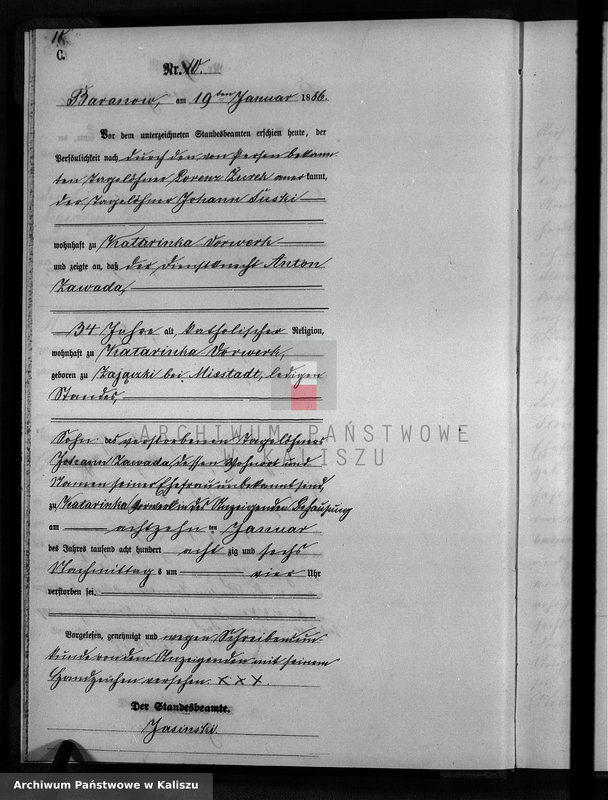 C.
Nr. 10.
Baranow, am 19ten Januar 1886.
Vor dem unterzeichneten Standesbeamten erschien heute, der
Persönlichkeit nach durch den von Person bekann-
ten Tagelöhner Lorenz Zurek aner kannt,
der Tagelöhner Johann
wohnhaft zu Katarinka Vorwerk
und zeigte an, daß der Dienstknecht Anton
Zawada,
34 Jahre alt, katholischer Religion,
wohnhaft zu Katarinka Vorwerk,
geboren zu Zajączki bei Mixstadt, ledigen
Standes,
ARCHIWUM PAŃSTWOWE
W KALISZU
Sohn des verstorbenen Tagelöhners
Johann Zawada, dessen Wohnort und
Namen seiner Ehefrau unbekannt sind,
zu Katarinka Vorwerk in des Anzeigenden Behausung
am achtzehn ten Januar
des Jahres tausend acht hundert acht zig und sechs
Nachmittag s um vier Uhr
verstorben sei.
Vorgelesen, genehmigt und wegen Schreibensun-
kunde von dem Anzeigenden mit seinem
Handzeichen versehen. XXX.
Der Standesbeamte.
Jasinski.
Archiwum Państwowe w Kaliszu